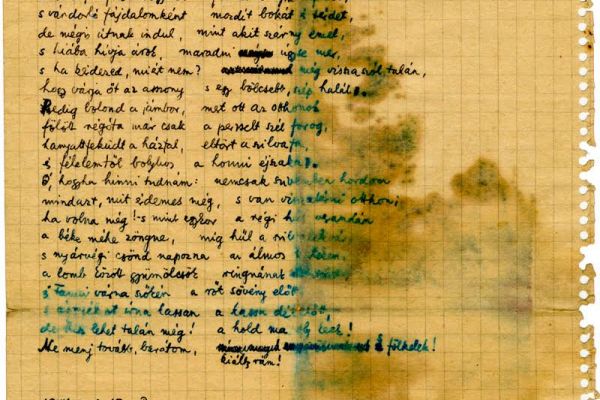 s vándorló fájdalomként mozdít bokát s térdet,
de mégis útnak indul, mint akit szárny emel,
s hiába hívja árok, maradni úgyse mer,
s ha kérdezed, miért nem? még visszaszól talán,
hogy várja őt az asszony s egy bölcsebb, szép halál.
Pedig bolond a jámbor, mert ott az otthonok
fölött régóta már csak a perzselt szél forog,
hanyattfeküdt a házfal, eltört a szilvafa,
s félelemtől bolyhos a honni éjszaka.
Ó, hogyha hinni tudnám: nemcsak szivemben hordom
mindazt, mit érdemes még, s van visszatérni otthon;
ha volna még! s mint egykor a régi hűs verandán
a béke méhe zöngne, míg hűl a
s nyárvégi csönd napozna az álmos
a lomb között gyümölcsök ringnának
s Fanni várna szőkén a rőt sövény előtt,
s írna lassan a lassu délelőtt,
de hisz lehet talán még! a hold ma oly
Ne menj tovább, barátom, s fölkelek!
kiálts rám!